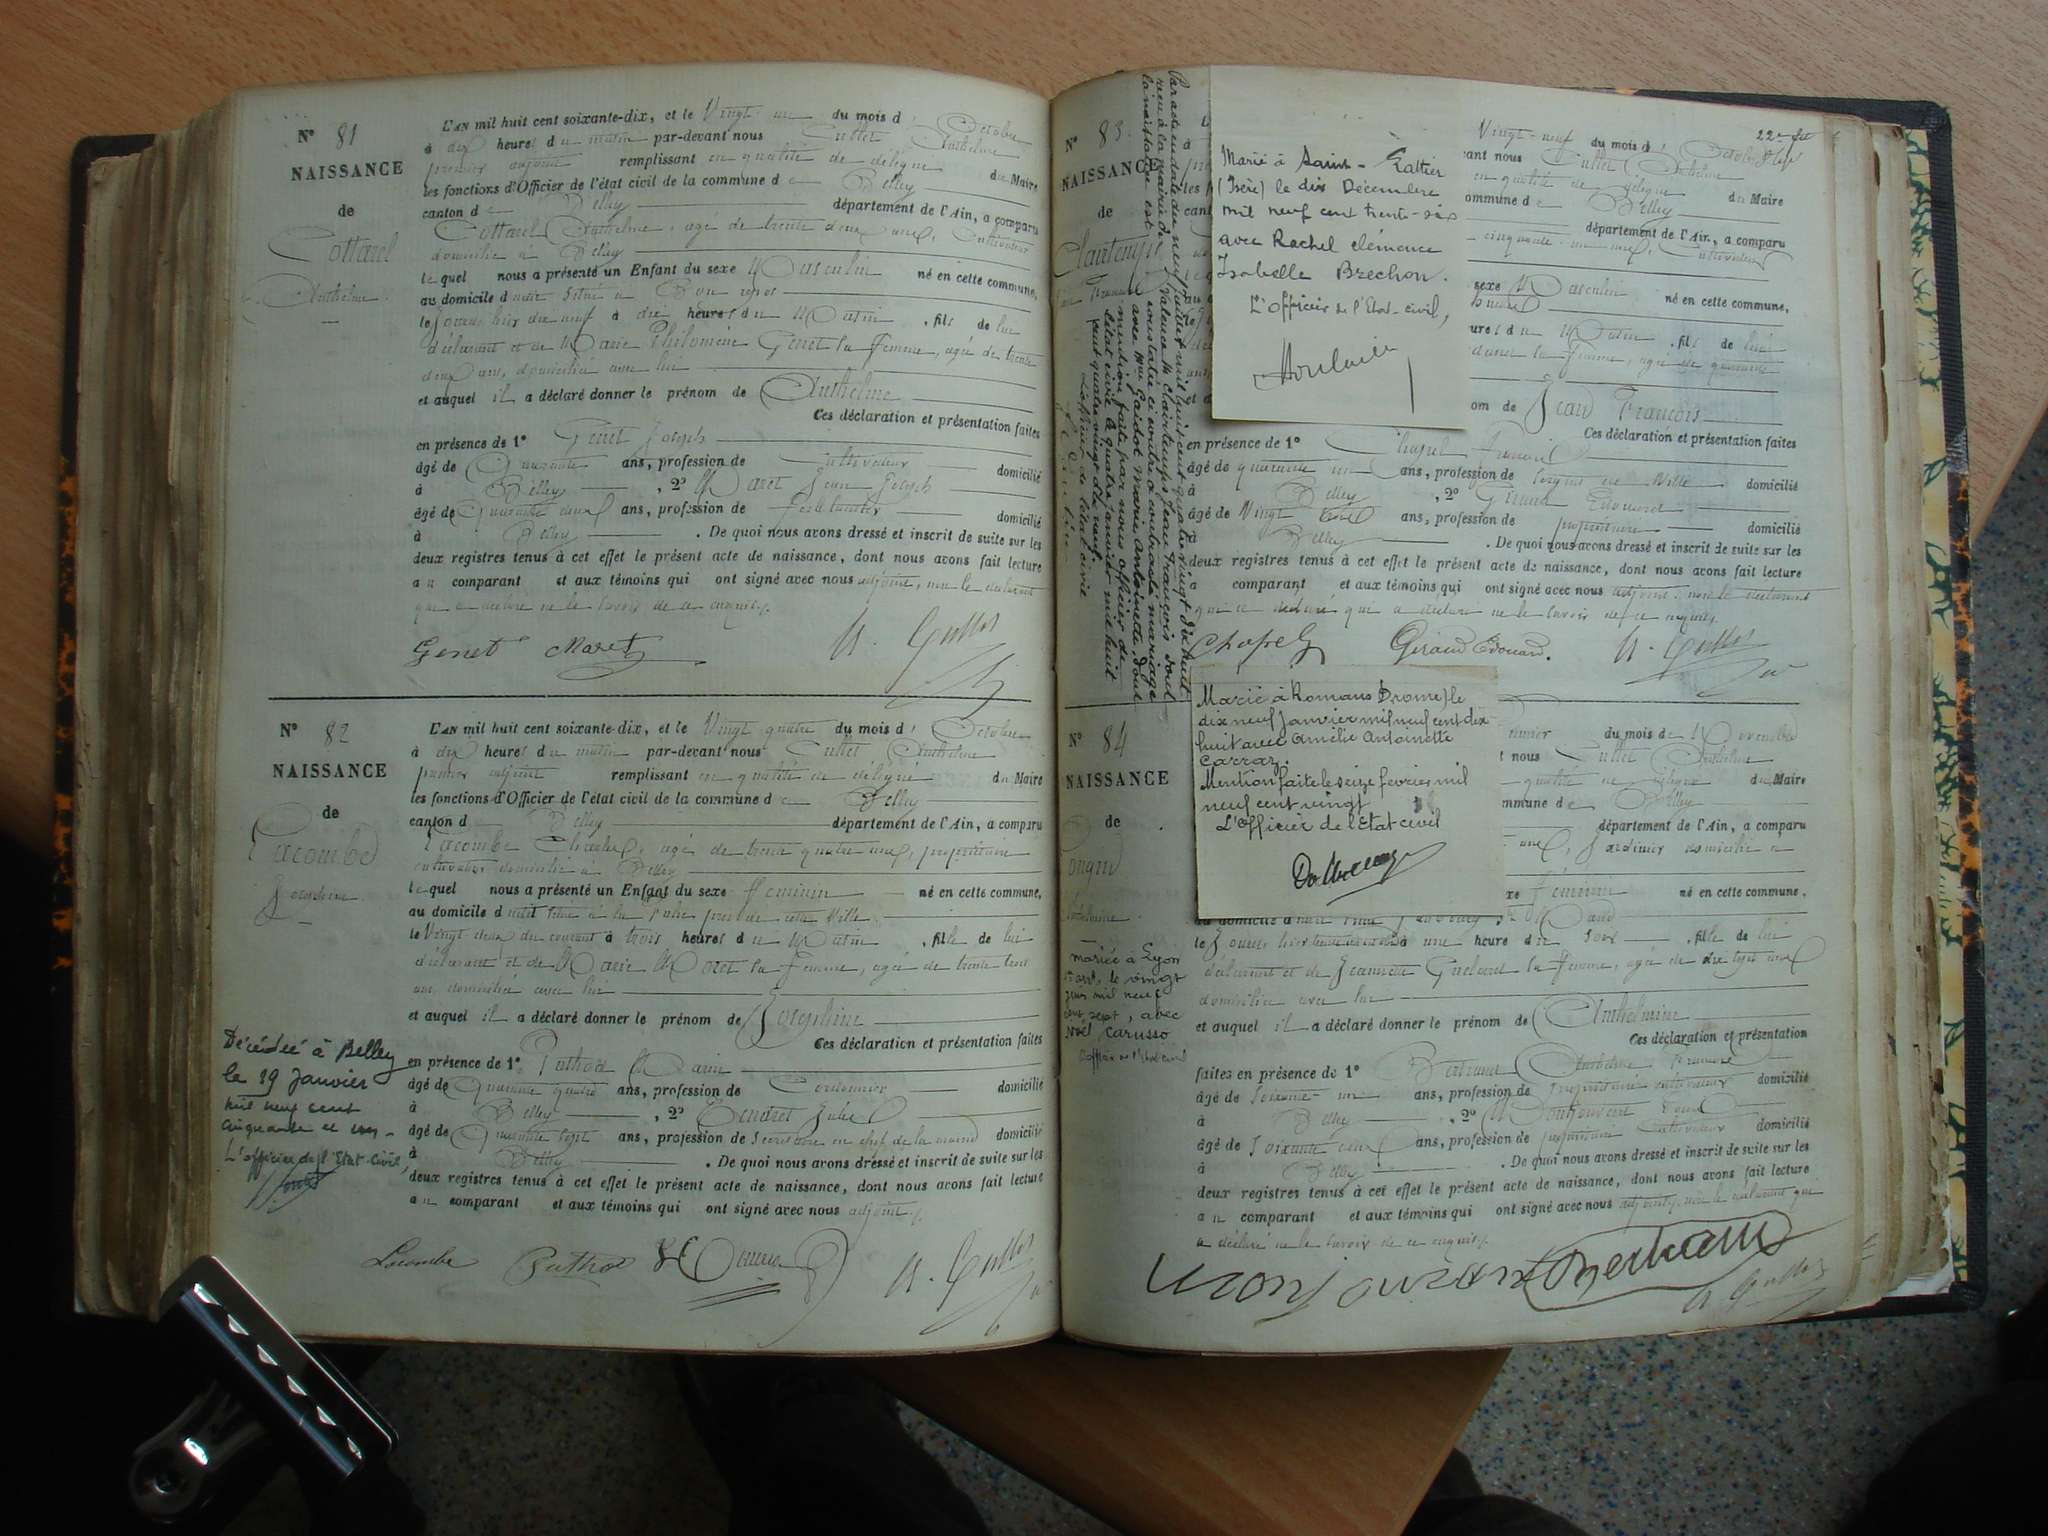 N° 81
NAISSANCE
de
Cottarel
Anthelme.
L'AN mil huit cent soixante-dix, et le Vingt un du mois d' Octobre
à dix heures du matin par-devant nous Cullet Anthelme
premier adjoint remplissant en qualité de délégué du Maire
les fonctions d'Officier de l'état civil de la commune de Belley
canton de Belley département de l'Ain, a comparu
Cottarel Anthelme, agé de trente deux ans, Cultivateur
domicilié à Belley
lequel nous a présenté un Enfant du sexe Masculin né en cette commune,
au domicile situé à Bon repos
le Jour hier dix neuf à dix heures du Matin, fils de lui
déclarant et de Marie Philomène Genet sa femme, agée de trente
deux ans, domiciliée avec lui
et auquel il a déclaré donner le prénom de Anthelme
Ces déclaration et présentation faites
en présence de 1° Genet Joseph
âgé de Quarante ans, profession de Cultivateur domicilié
à Belley, 2° Maret Jean Joseph
âgé de Quarante deux ans, profession de Ferblantier domicilié
à Belley. De quoi nous avons dressé et inscrit de suite sur les
deux registres tenus à cet effet le présent acte de naissance, dont nous avons fait lecture
au comparant et aux témoins qui ont signé avec nous adjoint, non le déclarant
qui a déclaré ne le savoir de ce enquis.
Genet Maret A. Cullet
N° 82
NAISSANCE
de
Lacombe
Joséphine
L'AN mil huit cent soixante-dix, et le Vingt quatre du mois d' Octobre
à dix heures du matin par-devant nous Cullet Anthelme
premier adjoint remplissant en qualité de délégué du Maire
les fonctions d'Officier de l'état civil de la commune de Belley
canton de Belley département de l'Ain, a comparu
Lacombe Charles, agé de trente quatre ans, propriétaire
cultivateur domicilié à Belley
lequel nous a présenté un Enfant du sexe féminin né en cette commune,
au domicile dudit situé à la près de cette Ville
le Vingt deux du courant à trois heures du Matin, fille de lui
déclarant et de Marie Moret sa femme, agée de trente trois
ans, domiciliée avec lui
et auquel il a déclaré donner le prénom de Joséphine
Ces déclaration et présentation faites
en présence de 1° Puthod Marin
âgé de Quarante quatre ans, profession de Cordonnier domicilié
à Belley, 2° Tendret Jules
âgé de Quarante sept ans, profession de Secrétaire en chef de la mairie domicilié
à Belley. De quoi nous avons dressé et inscrit de suite sur les
deux registres tenus à cet effet le présent acte de naissance, dont nous avons fait lecture
au comparant et aux témoins qui ont signé avec nous adjoint.
Décédée à Belley
le 19 Janvier
mil neuf cent
cinquante et un.
L'officier de l'Etat-Civil,
Lacombe Puthod A. Cullet
22e fet
N° 83
NAISSANCE
de
Clairtemps
Jean François
Par acte en date du neuf juillet mil huit cent quatre vingt dix huit
reçu à la mairie de Valence, Mr Clairtemps Jean François dont
la naissance est constatée ci contre a contracté mariage
avec Mlle Gaidot Marie Antoinette, dont
mention faite par nous officier de
l'état civil le quatre janvier mil huit
cent quatre vingt dix neuf.
L'officier de l'état civil
Marié à Saint-Lattier
(Isère) le dix Décembre
mil neuf cent trente-six
avec Rachel clémence
Isabelle Brechon.
L'Officier de l'Etat-civil,
Vingt-neuf du mois d' Octobre
vant nous Cullet Anthelme
en qualité de délégué du Maire
ommune de Belley
département de l'Ain, a comparu
cinquante un ans, Cultivateur
sexe Masculin né en cette commune,
ures du Matin, fils de lui
sa femme, agée de quarante
om de Jean François
Ces déclaration et présentation faites
en présence de 1° Chapel François
âgé de quarante un ans, profession de Sergent de Ville domicilié
à Belley, 2° Giraud Edouard
âgé de Vingt ans, profession de propriétaire domicilié
à Belley. De quoi nous avons dressé et inscrit de suite sur les
deux registres tenus à cet effet le présent acte de naissance, dont nous avons fait lecture
a comparant et aux témoins qui ont signé avec nous adjoint non le déclarant
qui a déclaré ne le savoir de ce enquis.
Chapel Giraud Edouard. A. Cullet
N° 84
NAISSANCE
de
Anthelmine
Marié à Romans Drome) le
dix neuf Janvier mil neuf cent dix
huit avec Amélie Antoinette
Carraz.
Mention faite le seize février mil
neuf cent vingt
L'Officier de l'Etat civil
du mois de Novembre
t nous Cullet Anthelme
qualité de délégué du Maire
mmune de Belley
département de l'Ain, a comparu
ans, Jardinier domicilié à
xe féminin né en cette commune.
le Jour hier à une heure du Soir, fille de lui
déclarant et de Jeannette sa femme, agée de dix sept ans
domiciliée avec lui
et auquel il a déclaré donner le prénom de Anthelmine
Ces déclaration et présentation
faites en présence de 1° Bertrand Anthelme
âgé de Soixante-un ans, profession de propriétaire cultivateur domicilié
à Belley, 2°
âgé de Soixante deux ans, profession de propriétaire cultivateur domicilié
à Belley. De quoi nous avons dressé et inscrit de suite sur les
deux registres tenus à cet effet le présent acte de naissance, dont nous avons fait lecture
au comparant et aux témoins qui ont signé avec nous adjoint, non le déclarant qui
a déclaré ne le savoir de ce enquis.
mariée à Lyon
1er arr. le vingt
juin mil neuf
cent sept, avec
Noël Carusso
L'officier de l'Etat civil
Bertrand A. Cullet